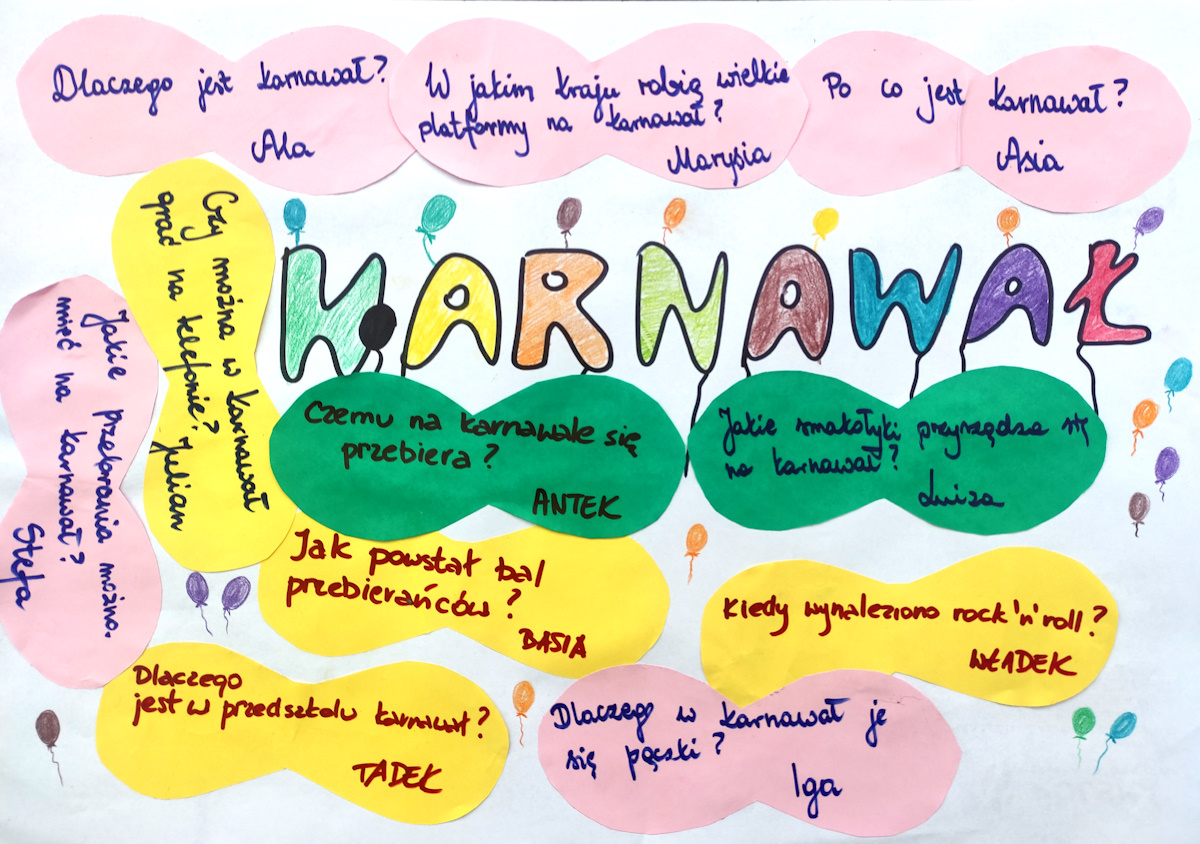 Dlaczego jest karnawał?
Ala
W jakim kraju robią wielkie
platformy na karnawał?
Marysia
Po co jest karnawał?
Asia
Czy można w karnawał
grać na telefonie?
Julian
KARNAWAŁ
Jakie przebrania można.
mieć na karnawał?
Stefa
Czemu na karnawale się
przebiera?
ANTEK
Jakie smakołyki przyrządza się
na karnawał?
Luiza
Jak powstał bal
przebierańców?
BASIA
Kiedy wynaleziono rock'n'roll?
WŁADEK
Dlaczego
jest w przedszkolu karnawał?
TADEK
Dlaczego w karnawał je
się pączki?
Iga